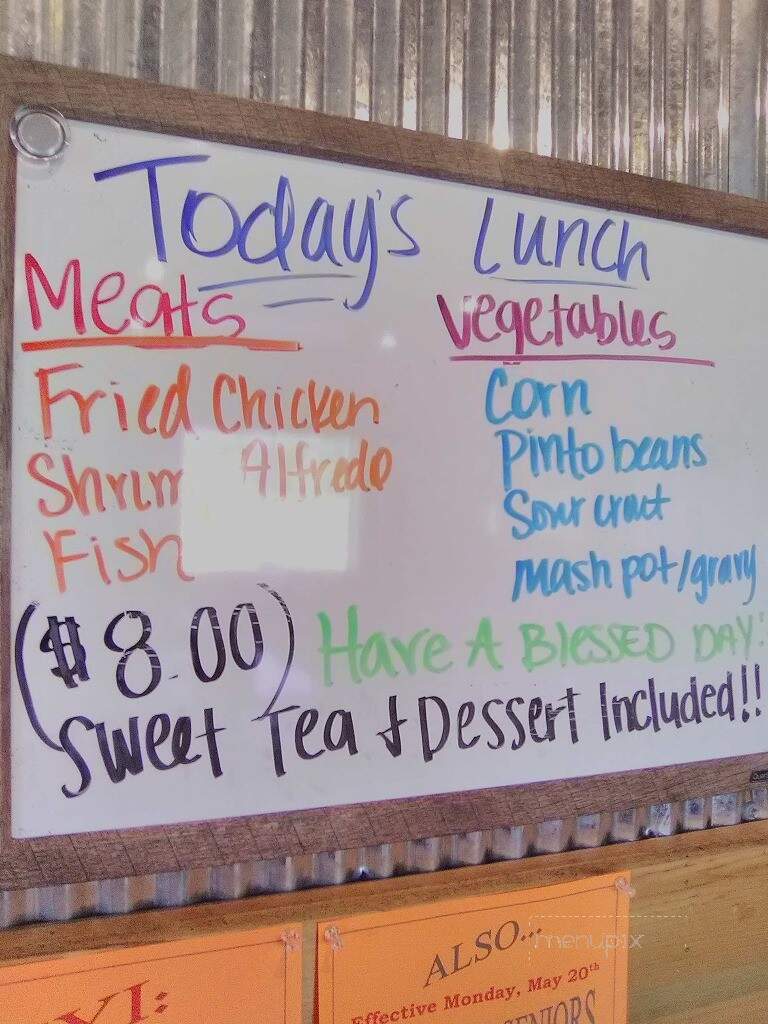 Today's Lunch
Meats
Vegetables
Fried Chicken
Shrim Alfredo
Fish
Corn
Pinto beans
Sour craut
mash pot/gravy
($8.00)
Have A Blessed DAY:
Sweet Tea & Dessert Included!!
YI:
ALSO...
Effective Monday, May 20th
SENIORS
menupix